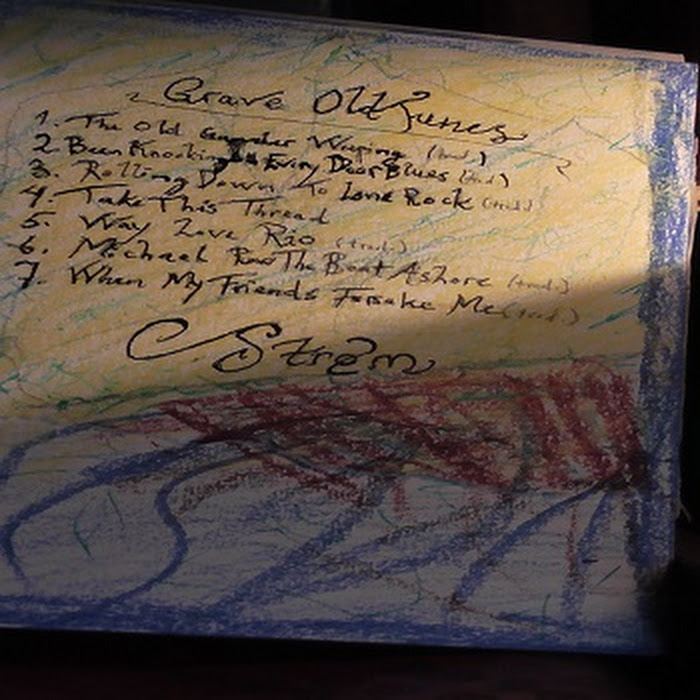 Grave Old Runes
1. The Old Weeping (trad.)
2. Been Knocking Every Door Blues (trad.)
3. Rolling Down To Love Rock (trad.)
4. Take This Thread
5. Way Love Rio (trad.)
6. Michael Row The Boat Ashore (trad.)
7. When My Friends Forsake Me (trad.)
C Strøm